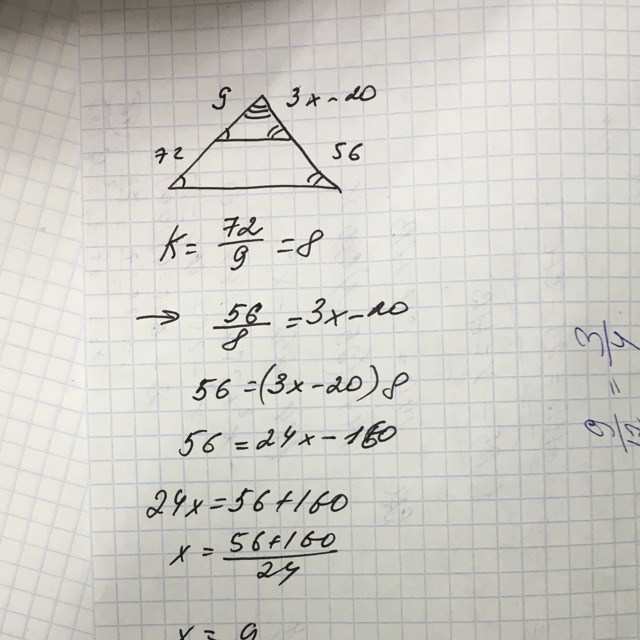 9 3x-20
72 56
K = 72/9 = 8
→ 56/8 = 3x-20
56 = (3x-20) 8
56 = 24x-160
24x = 56+160
x = 56+160/24
x = 9